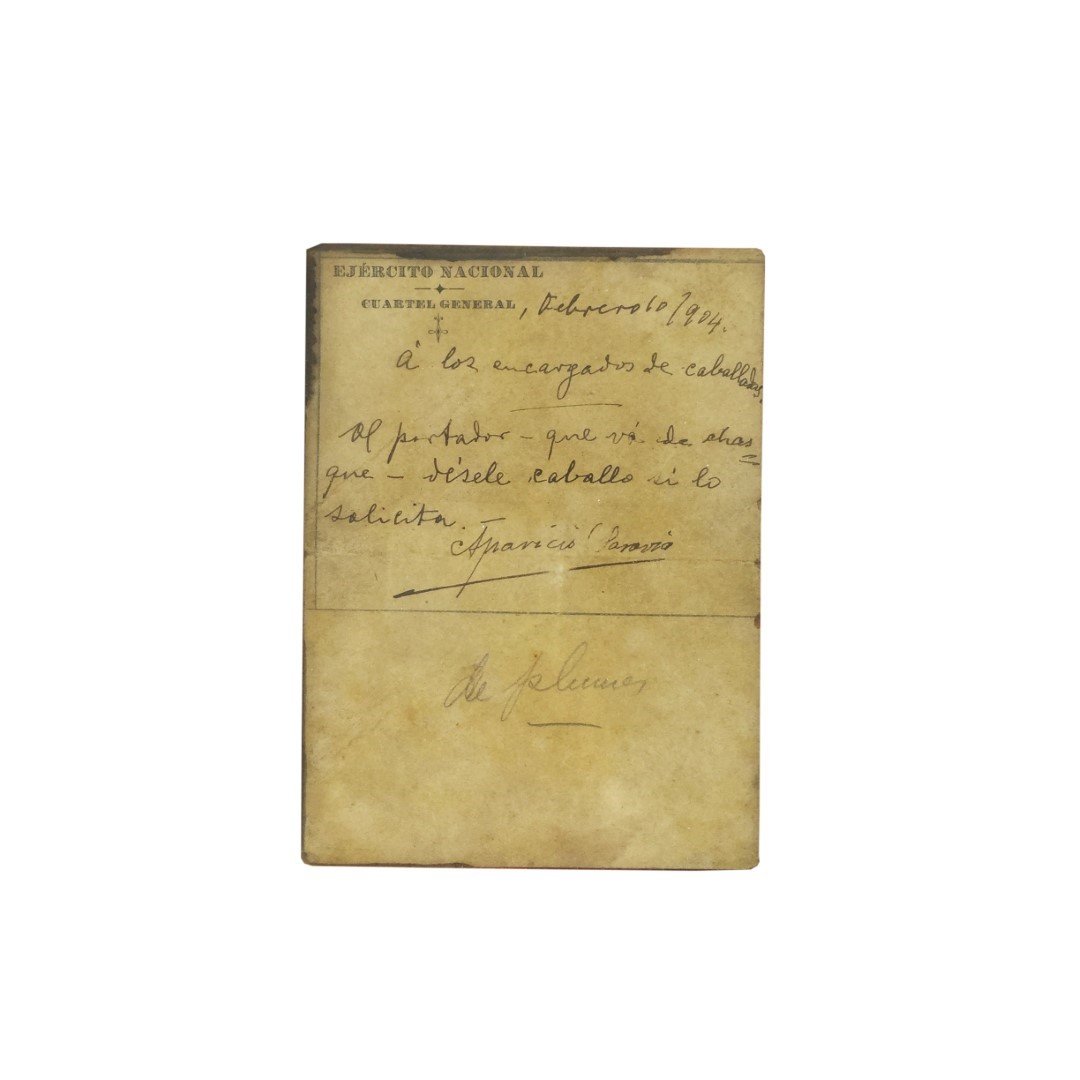 EJÉRCITO NACIONAL
CUARTEL GENERAL, Febrero 10/904.
Á los encargados de caballadas.
Al portador - que vá de chas=
que - désele caballo si lo
solicita. -
Aparicio Saravia
De plumas